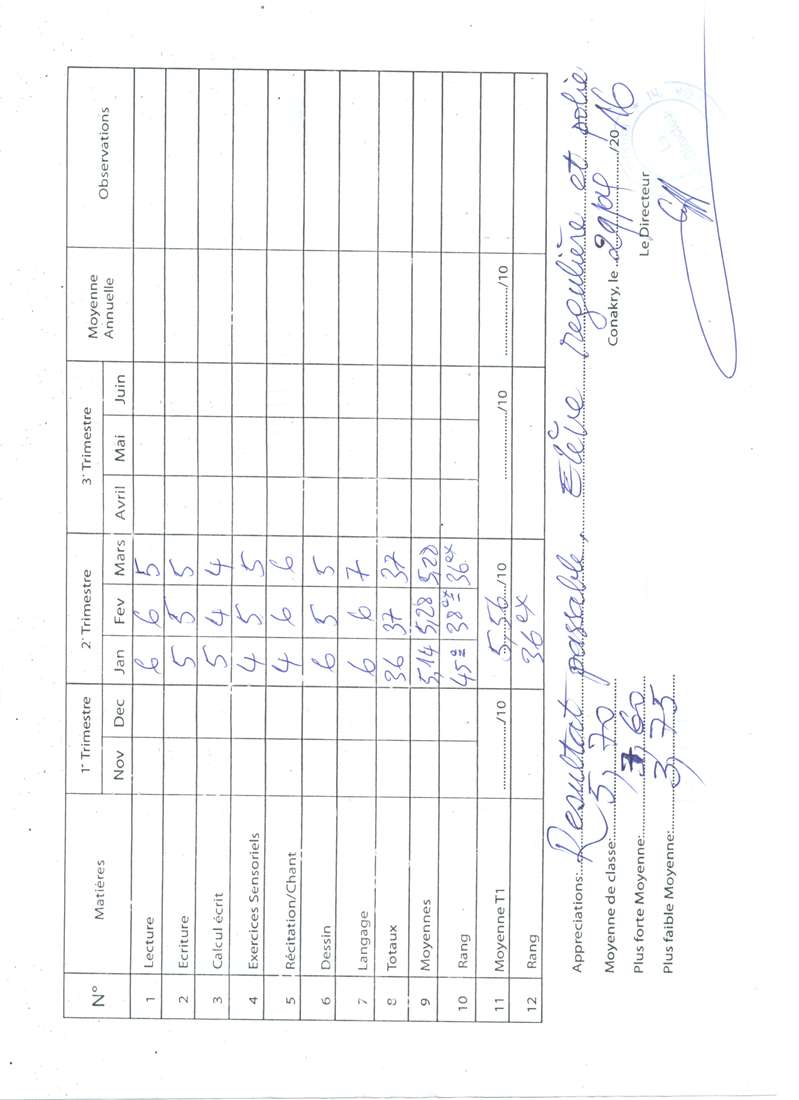 N° Matières 1° Trimestre 2° Trimestre 3° Trimestre Moyenne Annuelle Observations
Nov Dec Jan Fev Mars Avril Mai Juin
1 Lecture 6 6 5
2 Ecriture 5 5 5
3 Calcul écrit 5 4 4
4 Exercices Sensoriels 4 5 5
5 Récitation/Chant 4 6 6
6 Dessin 6 5 5
7 Langage 6 6 7
8 Totaux 36 37 37
9 Moyennes 5,14 5,28 5,28
10 Rang 45e 38ex 36ex
11 Moyenne T1 ............/10 5,56/10 ............/10 ............/10
12 Rang 36ex
Appreciations: Resultat passable, Elève regulière et polie
Moyenne de classe: 5,70
Conakry, le /2016
Plus forte Moyenne: 7,60
Le Directeur
Plus faible Moyenne: 3,75